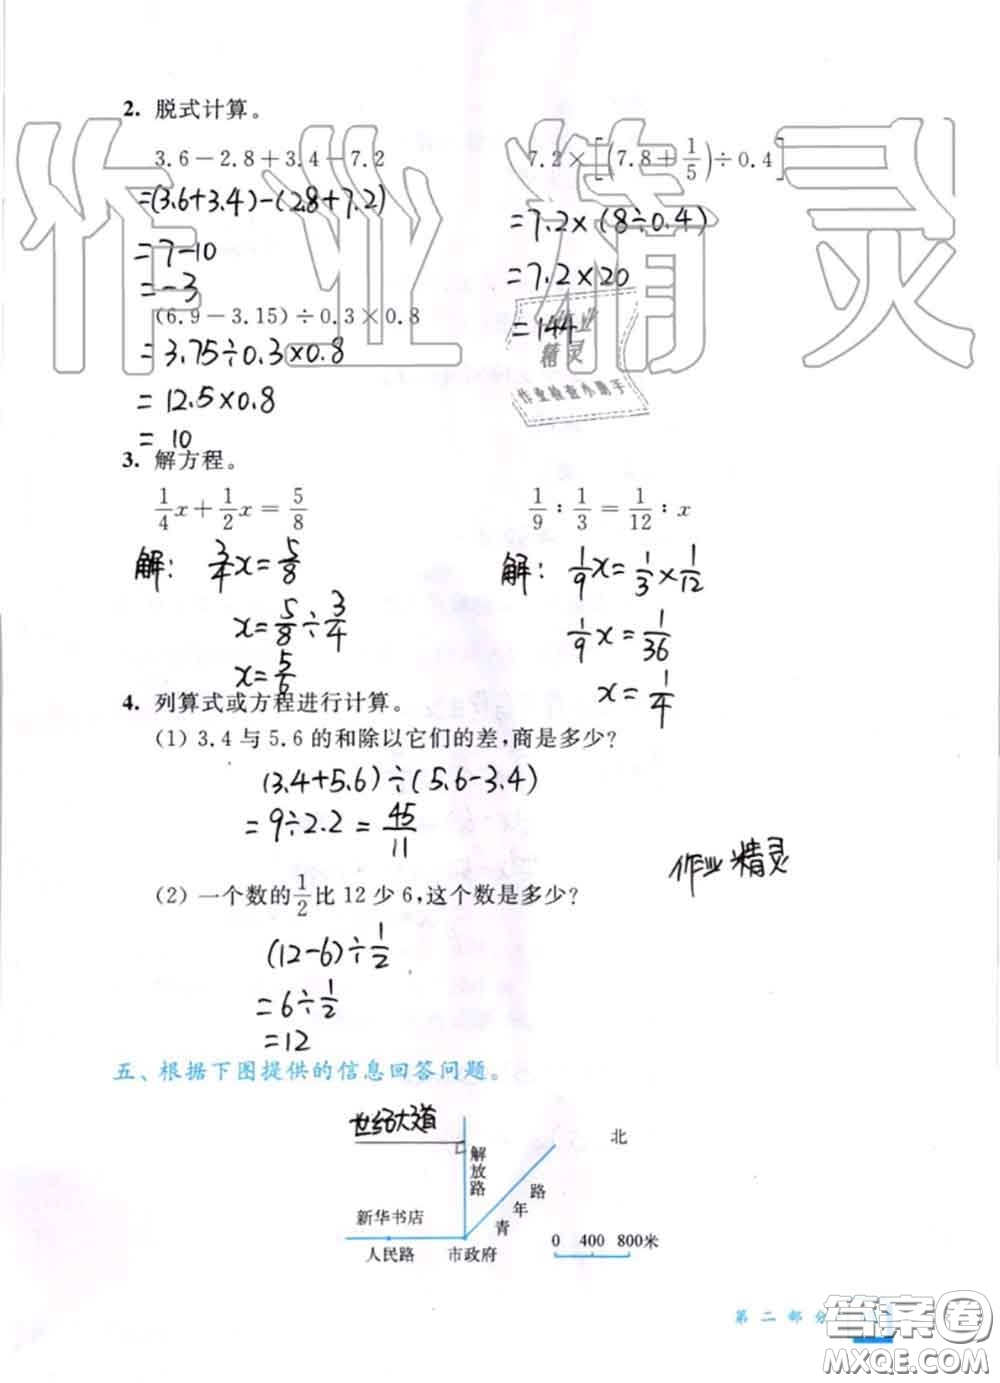 2. 脱式计算。
3.6－2.8＋3.4－7.2
=(3.6+3.4)-(2.8+7.2)
=7-10
=-3
7.2×[(7.8＋1/5)÷0.4]
=7.2×(8÷0.4)
=7.2×20
=144
(6.9－3.15)÷0.3×0.8
=3.75÷0.3×0.8
=12.5×0.8
=10
作业精灵
作业
精灵
作业检查小助手
3. 解方程。
1/4x＋1/2x＝5/8
解: 3/4x=5/8
x=5/8÷3/4
x=5/6
1/9∶1/3＝1/12∶x
解: 1/9x=1/3×1/12
1/9x=1/36
x=1/4
4. 列算式或方程进行计算。
(1) 3.4 与 5.6 的和除以它们的差,商是多少?
(3.4+5.6)÷(5.6-3.4)
=9÷2.2=45/11
作业精灵
(2) 一个数的1/2比 12 少 6,这个数是多少?
(12-6)÷1/2
=6÷1/2
=12
五、根据下图提供的信息回答问题。
世纪大道
北
解放路
青年路
新华书店
人民路
市政府
0 400 800米
第二部分
答案圈
MXQE.COM